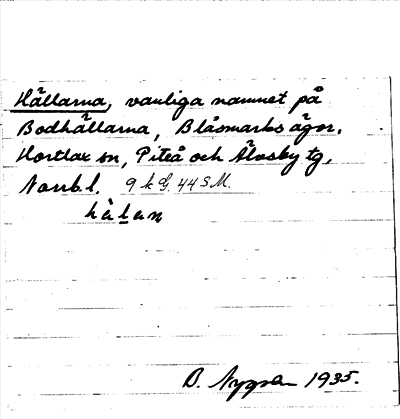 Hällarna, vanliga namnet på
Bodhällarna, Blåsmarks ägor.
Hortlax sn, Piteå och Älvsby tg,
Norrb. l. 9 k G. 44 S M.
B. Nygren 1935.